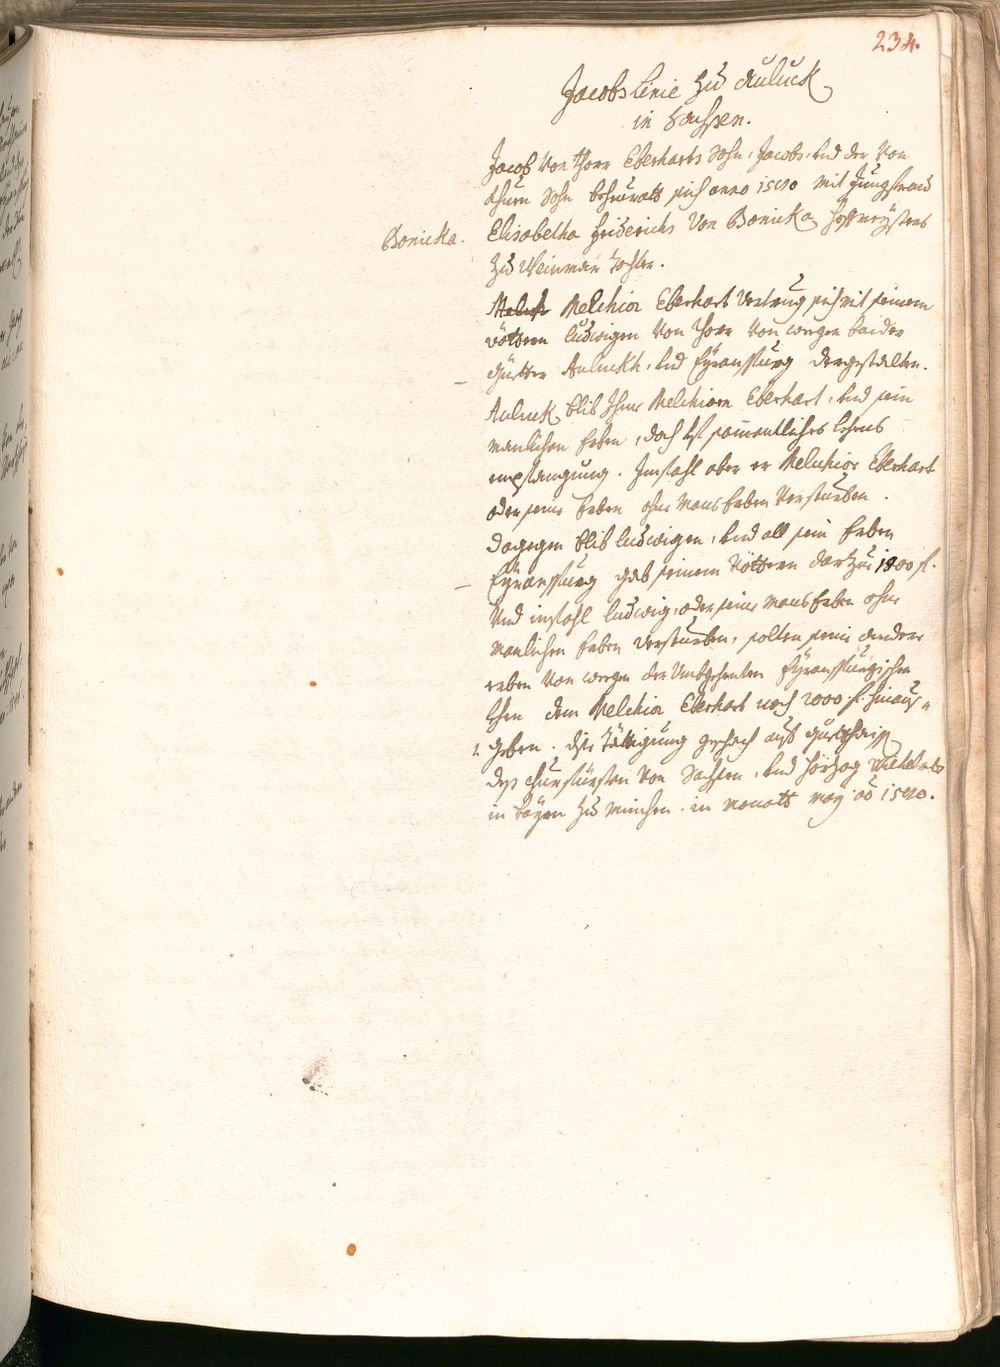 234.
Jacobs linie zu Auluck
in Sachsen.
Jacob von Thorr Eberharts Sohn, Jacobs, und der von
Thurn Sohn beheurath sich anno 1540 mit Jungfrau
Elisabetha Friderichs von Bonicka Hoffmeysters
Bonicka.
zu Weinmar Tochter.
Melch Melchior Eberhart vertrug sich mit seinem
vöttern Ludwigen von Thorr von wegen baider
Güetter Auluckh, und Eyraspurg dergestalten.
Auluck blib Ihme Melchiorn Eberhart, und sein
manlichen Erben, doch ist samentliches lehens
empfangung. Im fahl aber er Melchior Eberhart
oder seine Erben ohne Mans Erben verstürben.
dagegen blib Ludwigen, und all sein Erben
Eyraspurg gab seinem Vöttern dartzue 1800 fl.
Und im fahl Ludwig, oder seine Mans Erben ohne
Manlichen Erben verstürben, solten seine andere
erben von wegen der Eyraspurgischen
lehen dem Melchior Eberhart noch 2000 fl. hinaus
geben. Dise gschach auf
des Churfürsten von Sachsen, und Hörzog Wilhelmbs
in Bayrn zu München in monats May ao 1540.